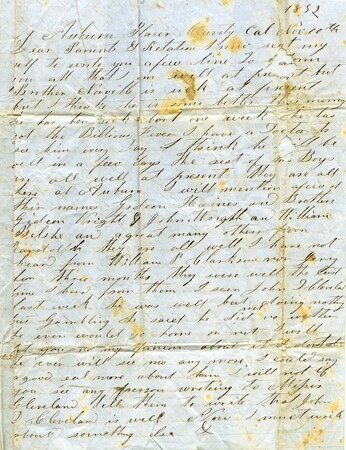 1852
Auburn Placer County Cal Nov 10th
Dear Parents & Relation I now seat my
self to write you a few line to inform
you all that I am well at present but
Brother Norville is sick at present
but I think he is some better this morning
he has been sick about one week he has
got the Billious Fever I have a Doctor to
see him every day I think he will be
well in a few days the rest of the Boys
are all well at present they are all
here at Auburn I will mention a few of
their names Gideon Haines and Brothers
Gideon Wright & John Wright an William
Betshe an a great many others from
they are all well I have not
heard from William & Clarkson nor Gary
for three months they were well the last
time I heard from them I seen John Cleveland
last week he was well but doing nothing
but Gambling he said he did not
he ever would go home or not I will
you my opinion about it I dont
he ever will see me any more I could say
a good eal more about him I will not if
you see any person writing to Mifses
Cleveland tell them to write that John
Cleveland is well Now I must wrik
about something else